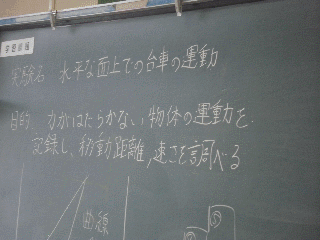 学習課題
実験名 水平な面上での台車の運動
目的 力がはたらかない物体の運動を
記録し、移動距離,速さを調べる
曲線